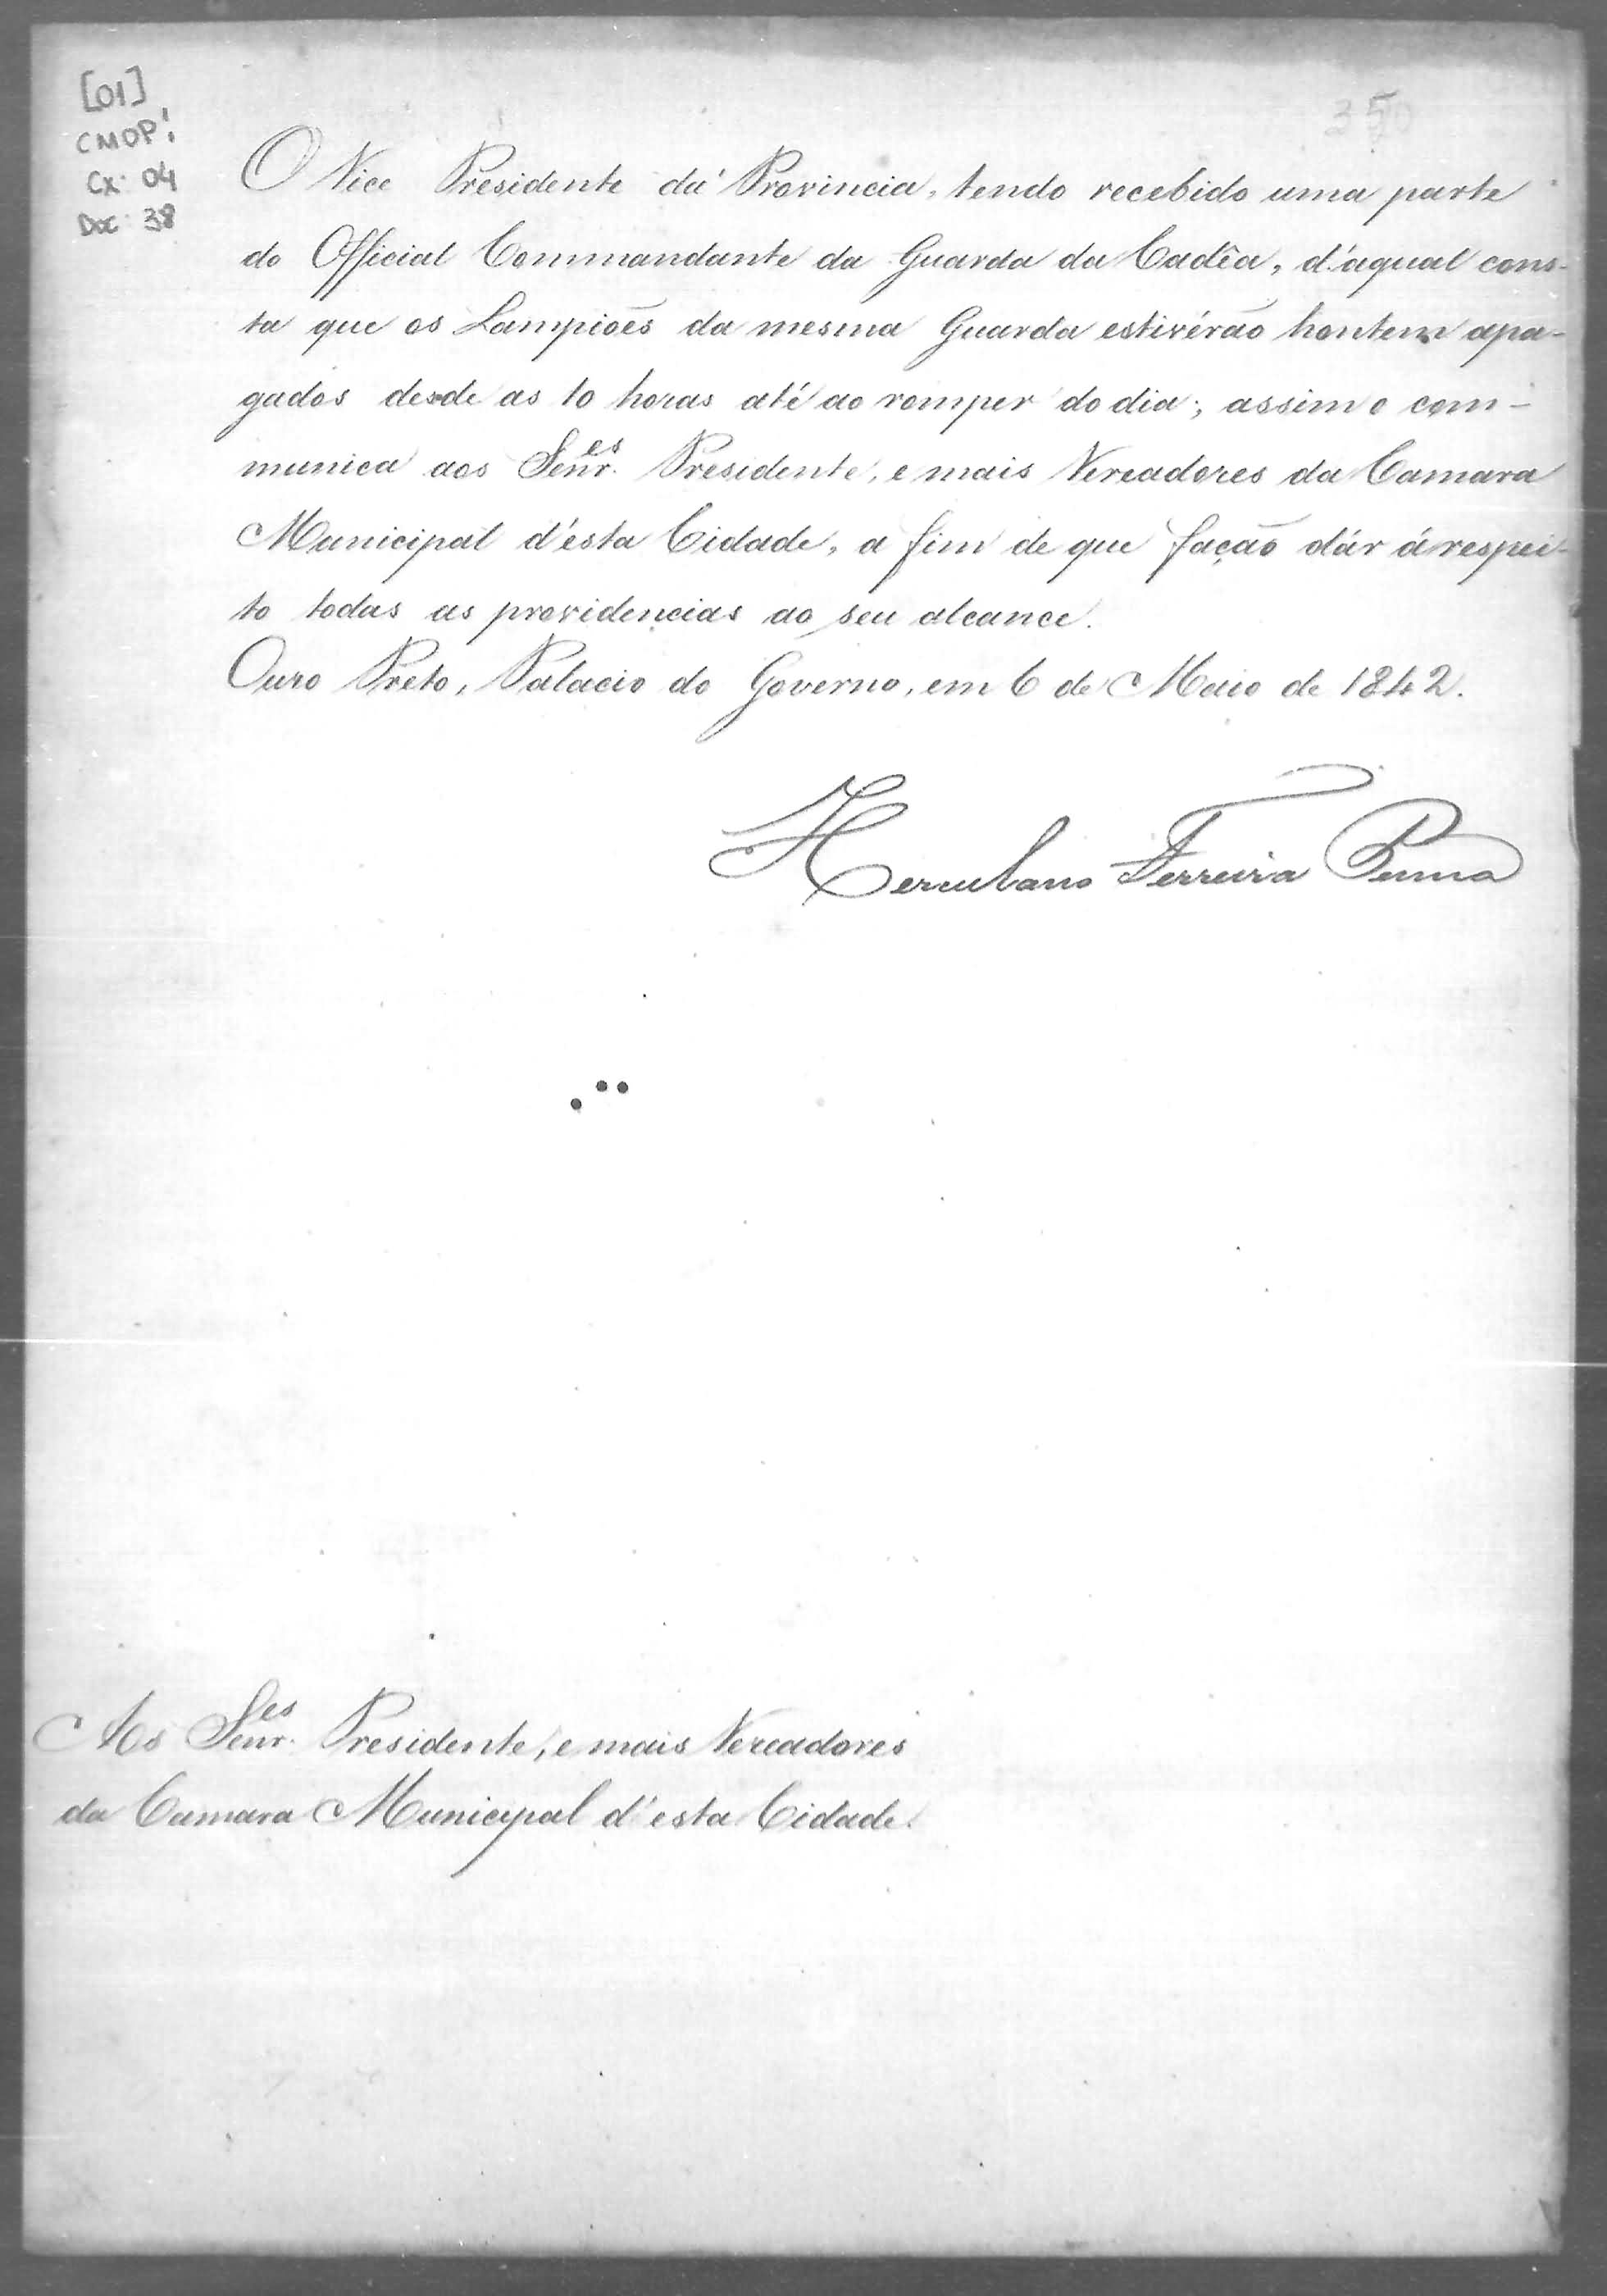 [01]
CMOP!
Cx: 04
Doc: 38
350
O Vice Presidente da Provincia, tendo recebido uma parte
do Official Commandante da Guarda da Cadêa, d'aqual cons-
ta que os Lampiões da mesma Guarda estivérão hontem apa-
gados desde as 10 horas até ao romper do dia; assim o com-
munica aos Senr.es Presidente, e mais Vereadores da Camara
Municipal d'esta Cidade, a fim de que fação dár á respei-
to todas as providencias ao seu alcance.
Ouro Preto, Palacio do Governo, em 6 de Maio de 1842.
Herculano Ferreira Penna
Aos Senr.es Presidente, e mais Vereadores
da Camara Municipal d'esta Cidade.